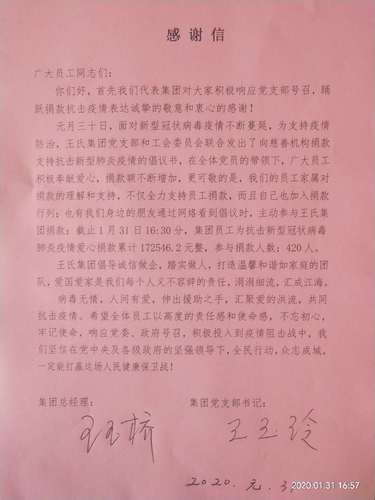 感谢信
广大员工同志们:
你们好,首先我们代表集团对大家积极响应党支部号召,踊
跃捐款抗击疫情表达诚挚的敬意和衷心的感谢!
元月三十日,面对新型冠状病毒疫情不断蔓延,为支持疫情
防治,王氏集团党支部和工会委员会联合发出了向慈善机构捐款
支持抗击新型肺炎疫情的倡议书,在全体党员的带领下,广大员工
积极奉献爱心,捐款额不断增加,更可敬的是,我们的员工家属对
捐款的理解和支持,不仅全力支持员工捐款,而且自己也加入捐款
行列;也有我们身边的朋友通过网络看到倡议时,主动参与王氏集
团捐款;截止1月31日16:30分,集团员工为抗击新型冠状病毒
肺炎疫情爱心捐款累计172546.2元整,参与捐款人数:420人。
王氏集团倡导诚信做企,踏实做人,打造温馨和谐如家庭的团
队,爱国爱家是我们每个人义不容辞的责任,涓涓细流,汇成江海。
病毒无情,人间有爱,伸出援助之手,汇聚爱的洪流,共同
抗击疫情。希望全体员工以高度的责任感和使命感,不忘初心,
牢记使命,响应党委、政府号召,积极投入到疫情阻击战中,我
们坚信在党中央及各级政府的坚强领导下,全民行动,众志成城,
一定能打赢这场人民健康保卫战!
集团总经理: 集团党支部书记:
王玉桥 王玉玲
2020.元.3
2020.01.31 16:57